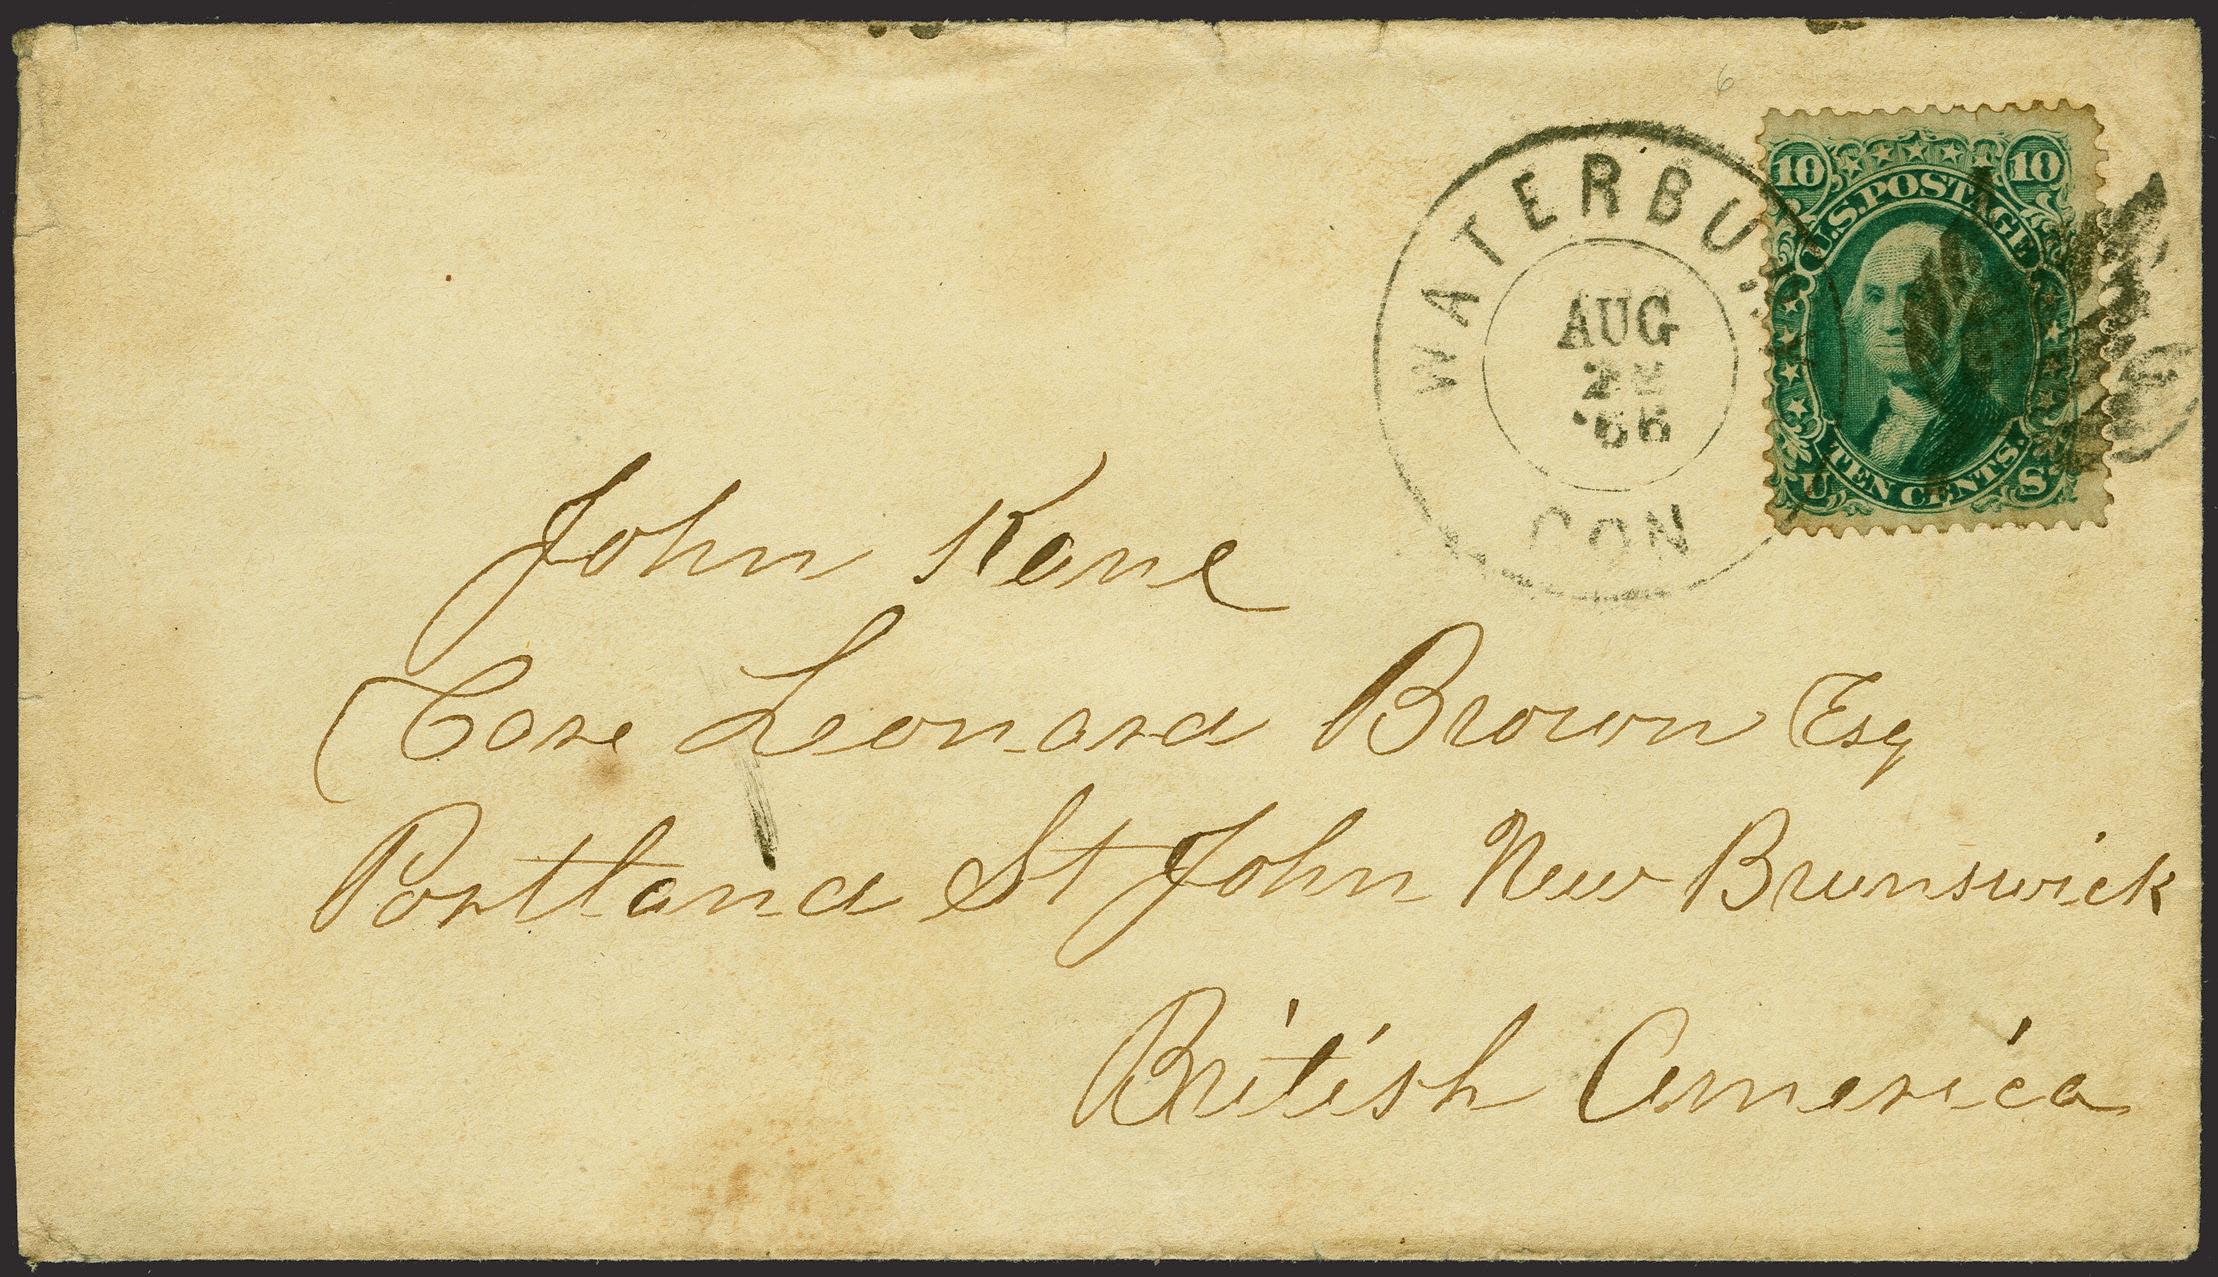 6
WATERBURY
AUG
'66
CON
10 10
U.S. POSTAGE
TEN CENTS.
U S
John Kane
Care Leonard Brown Esq
Portland St John New Brunswick
British America